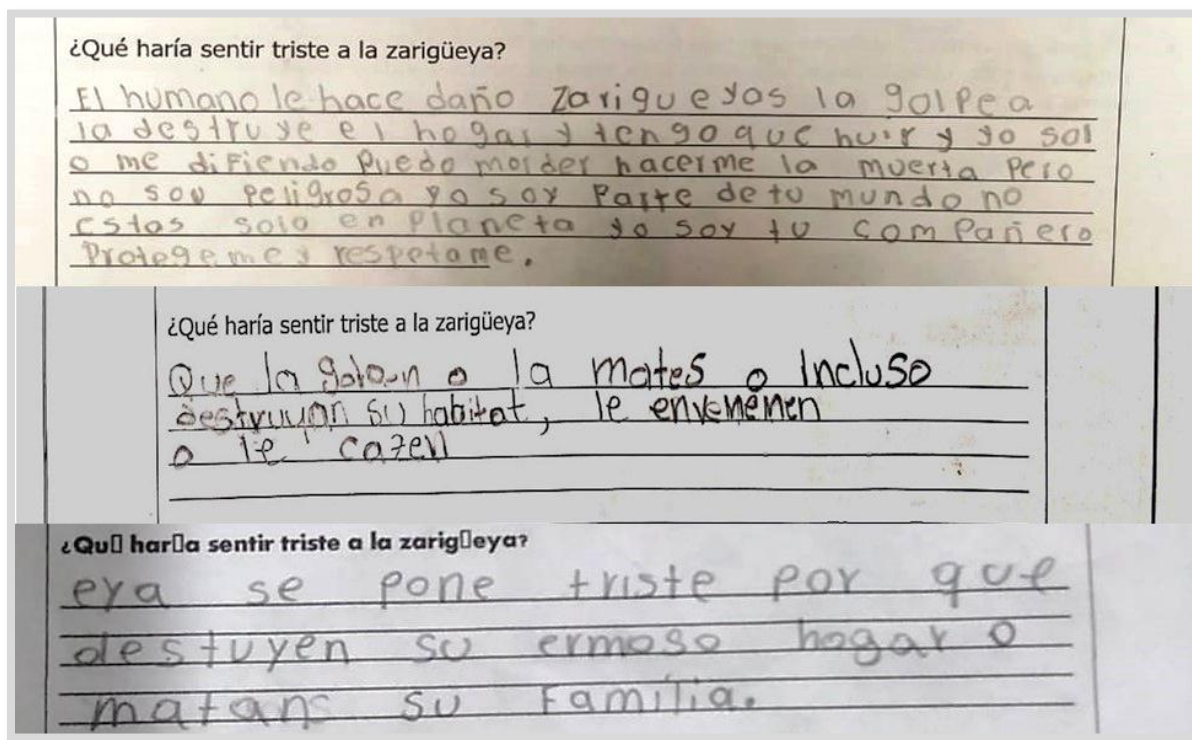 ¿Qué haría sentir triste a la zarigüeya?
El humano le hace daño zarigueyas la golpea
la destruye el hogar y tengo que huir y yo sol
o me difiendo puedo morder hacerme la muerta pero
no soy peligrosa yo soy parte de tu mundo no
estas solo en planeta yo soy tu compañero
Protegeme y respetame.
¿Qué haría sentir triste a la zarigüeya?
Que la golpen o la mates o incluso
destruyan su habitat, le envenenen
o le cazen
¿Qu▯ har▯a sentir triste a la zarig▯eya?
eya se pone triste por que
destuyen su ermoso hogar o
matans su familia.